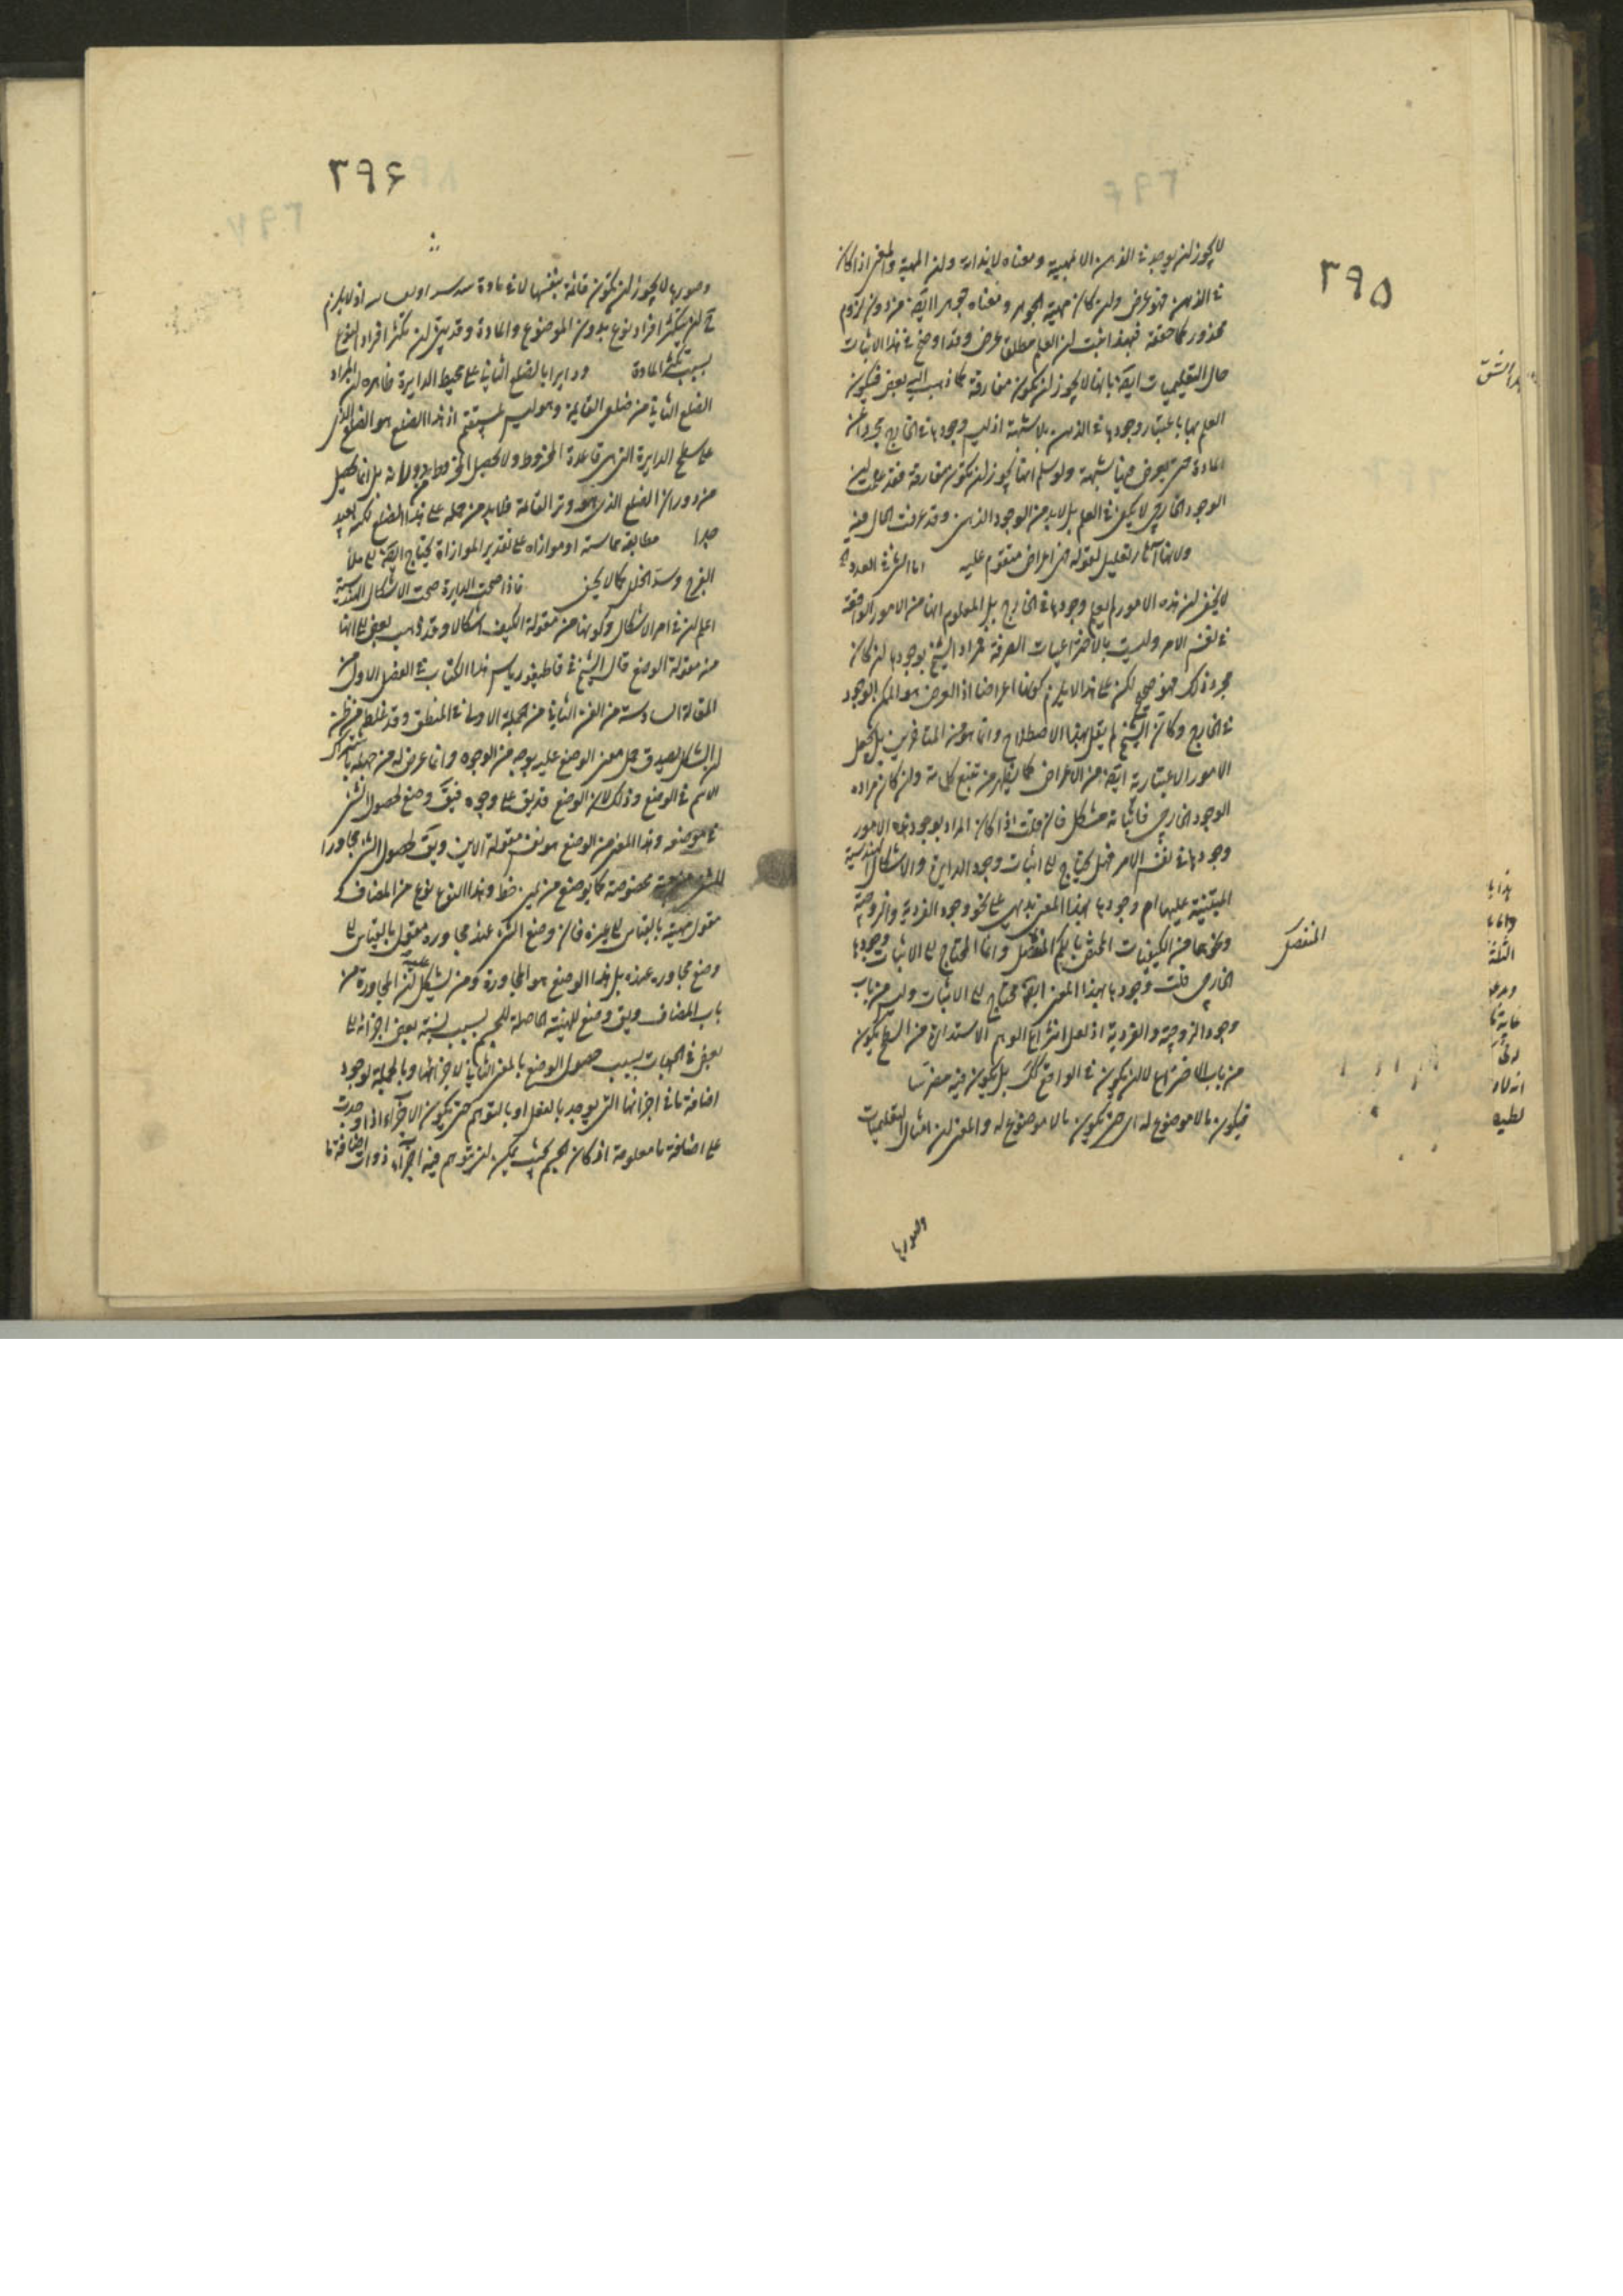 ٣٩٥
لا يجوز ان يوجد فى الذهن الا بمهيته ومعناه لا بذاته وان المهية والمعنى اذا كان
فى الذهن فهو عرض وان كان مهية الجوهر ومعناه جوهرا ايضا من دون لزوم
محذور كما حققه فبهذا يثبت ان العلم مطلقا عرض وقد اوضح فى هذا الاثبات
حال التعليميات ايضا بانها لا يجوز ان يكون مفارقة كما ذهب اليه بعض فيكون
العلم بها باعتبار وجودها فى الذهن بلا شبهة اذ ليس وجودها فى الخارج مجردا عن
المادة حتى يعرض فيها شبهة ولو سلم انها يجوز ان تكون مفارقة فقد علمت ان
الوجود الخارجى لا يكفى فى العلم بل لابد من الوجود الذهنى وقد عرفت الحال فيه
ولانها آثار تعليل لقوله هى اعراض متقوم عليه اما التى فى العدد
لا يخفى ان هذه الامور لم يعلم وجودها فى الخارج بل المعلوم انها من الامور الواقعة
فى نفس الامر وليست بالاختراعيات الصرفة فمراد الشيخ بوجودها ان كان
مجرد ذلك فهو صحيح لكن على هذا لا يلزم كونها اعراضا اذ العرض هو الممكن الموجود
فى الخارج وكان الشيخ لم يقل بهذا الاصطلاح وانما هو من المتاخرين بل يجعل
الامور الاعتبارية ايضا من الاعراض كما يظهر من تتبع كلماته وان كان مراده
الوجود الخارجى فاثباته مشكل فان قلت اذا كان المراد بوجود هذه الامور
وجودها فى نفس الامر فهل يحتاج الى اثبات وجود الدايرة والاشكال الهندسية
المبتنية عليها ام وجودها بهذا المعنى بديهى على نحو وجود الفردية والزوجية
ونحوهما من الكيفيات المختص بالكم المنفصل وانما المحتاج الى الاثبات وجودها
المنفصل
الخارجى قلت وجودها بهذا المعنى ايضا محتاج الى الاثبات وليس من باب
وجود الزوجية والفردية اذ لعل انتزاع الوهم الاستدارة من السطح يكون
من باب الاختراع لا ان يكون فى الواقع كك بل يكون فيه مضرسا
فيكون بالا موضوع له اى حتى تكون بالا موضوع له والمعنى ان امثال التعليميات
٣٩۶
وصورها لا يجوز ان تكون قائمة بنفسها لا فى مادة اذ لا يلزم
ح ان يتكثر افراد نوع بدون الموضوع والمادة وقد بين ان تكثر افراد النوع
بسبب تكثر المادة ودايرا بالضلع الثانى على محيط الدايرة ظاهره ان المراد
الضلع الثانى من ضلعى القايمة وهو ليس بمستقيم اذ هذا الضلع هو الضلع الذى
على سطح الدايرة التى هى قاعدة المخروط ولا يحصل المخروط من دورانه بل انما يحصل
من دوران الضلع الذى هو وتر القائمة فلابد من حمله على هذا الضلع لكنه بعيد
جدا مطابقة مماسة او موازاة على تقدير الموازاة يحتاج ايضا الى ملأ
الفرج وسد الخلل كما لا يخفى فاذا صحت الدايرة صحت الاشكال الهندسية
اعلم ان فى امر الاشكال وكونها من مقولة الكيف اشكالا وقد ذهب بعض الى انها
من مقولة الوضع قال الشيخ فى قاطيغورياس هذا الكتاب فى الفصل الاول من
المقالة السادسة من الفن الثانى من الجملة الاولى فى المنطق وقد غلط من ظن
ان الشكل يصدق حمل معنى الوضع عليه بوجه من الوجوه وانما عرض له من جهة اشتراك
الاسم فى الوضع وذلك لان الوضع قد يق على وجوه فيق وضع لحصول الشئ
فى موضعه وهذا المعنى من الوضع هو نفس مقولة الاين ويق لحصول الشئ مجاورا
للشئ من جهة مخصوصة كما يوضع عن يمين خط وهذا النوع نوع من المضاف
مقول مهية بالقياس الى غيره فان وضع الشئ عند مجاوره مقول بالقياس الى
وضع مجاوره عنده بل هذا الوضع هو المجاورة ومن يشكل عليه ان المجاورة من
باب المضاف ويق وضع للهيئة الحاصلة للجسم بسبب نسبة بعض اجزائه الى
بعض فى الجهات بسبب حصول الوضع بالمعنى الثانى لاجزائها وبالجملة لوجود
اضافة ما فى اجزائها التى توجد بالفعل او بالتوهم حتى يكون الاجزاء اذا وجدت
على اضافة ما معلومة اذ كان الجسم بحيث يمكن ان يتوهم فيه اجزاء ذوات اضافة ما